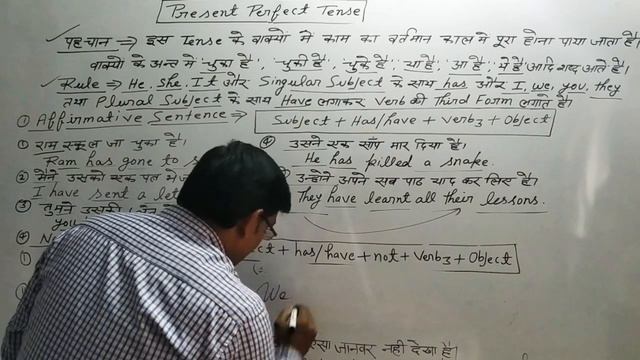 Present Perfect Tense
पहचान ⇒ इस Tense के वाक्यों में काम का वर्तमान काल में पूरा होना पाया जाता है।
वाक्यों के अन्त में चुका है, चुकी है, चुके है, या है, आ है, में है आदि शब्द आते है।
Rule ⇒ He, She, It और Singular Subject के साथ has और I, we, you, they
तथा Plural Subject के साथ Have लगाकर Verb की Third Form लगाते है।
① Affirmative Sentence ⇒ Subject + Has/have + verb3 + Object
① राम स्कूल जा चुका है।
Ram has gone to
② मैंने उसको एक
I have sent a
③ तुमने उसकी
you
④ उसने एक साँप मार दिया है।
He has pilled a snake.
उन्होंने अपने सब पाठ याद कर लिए है।
They have learnt all their lessons.
+ has/have + not + Verb3 + Object
①
We
जानवर नही देखा है।